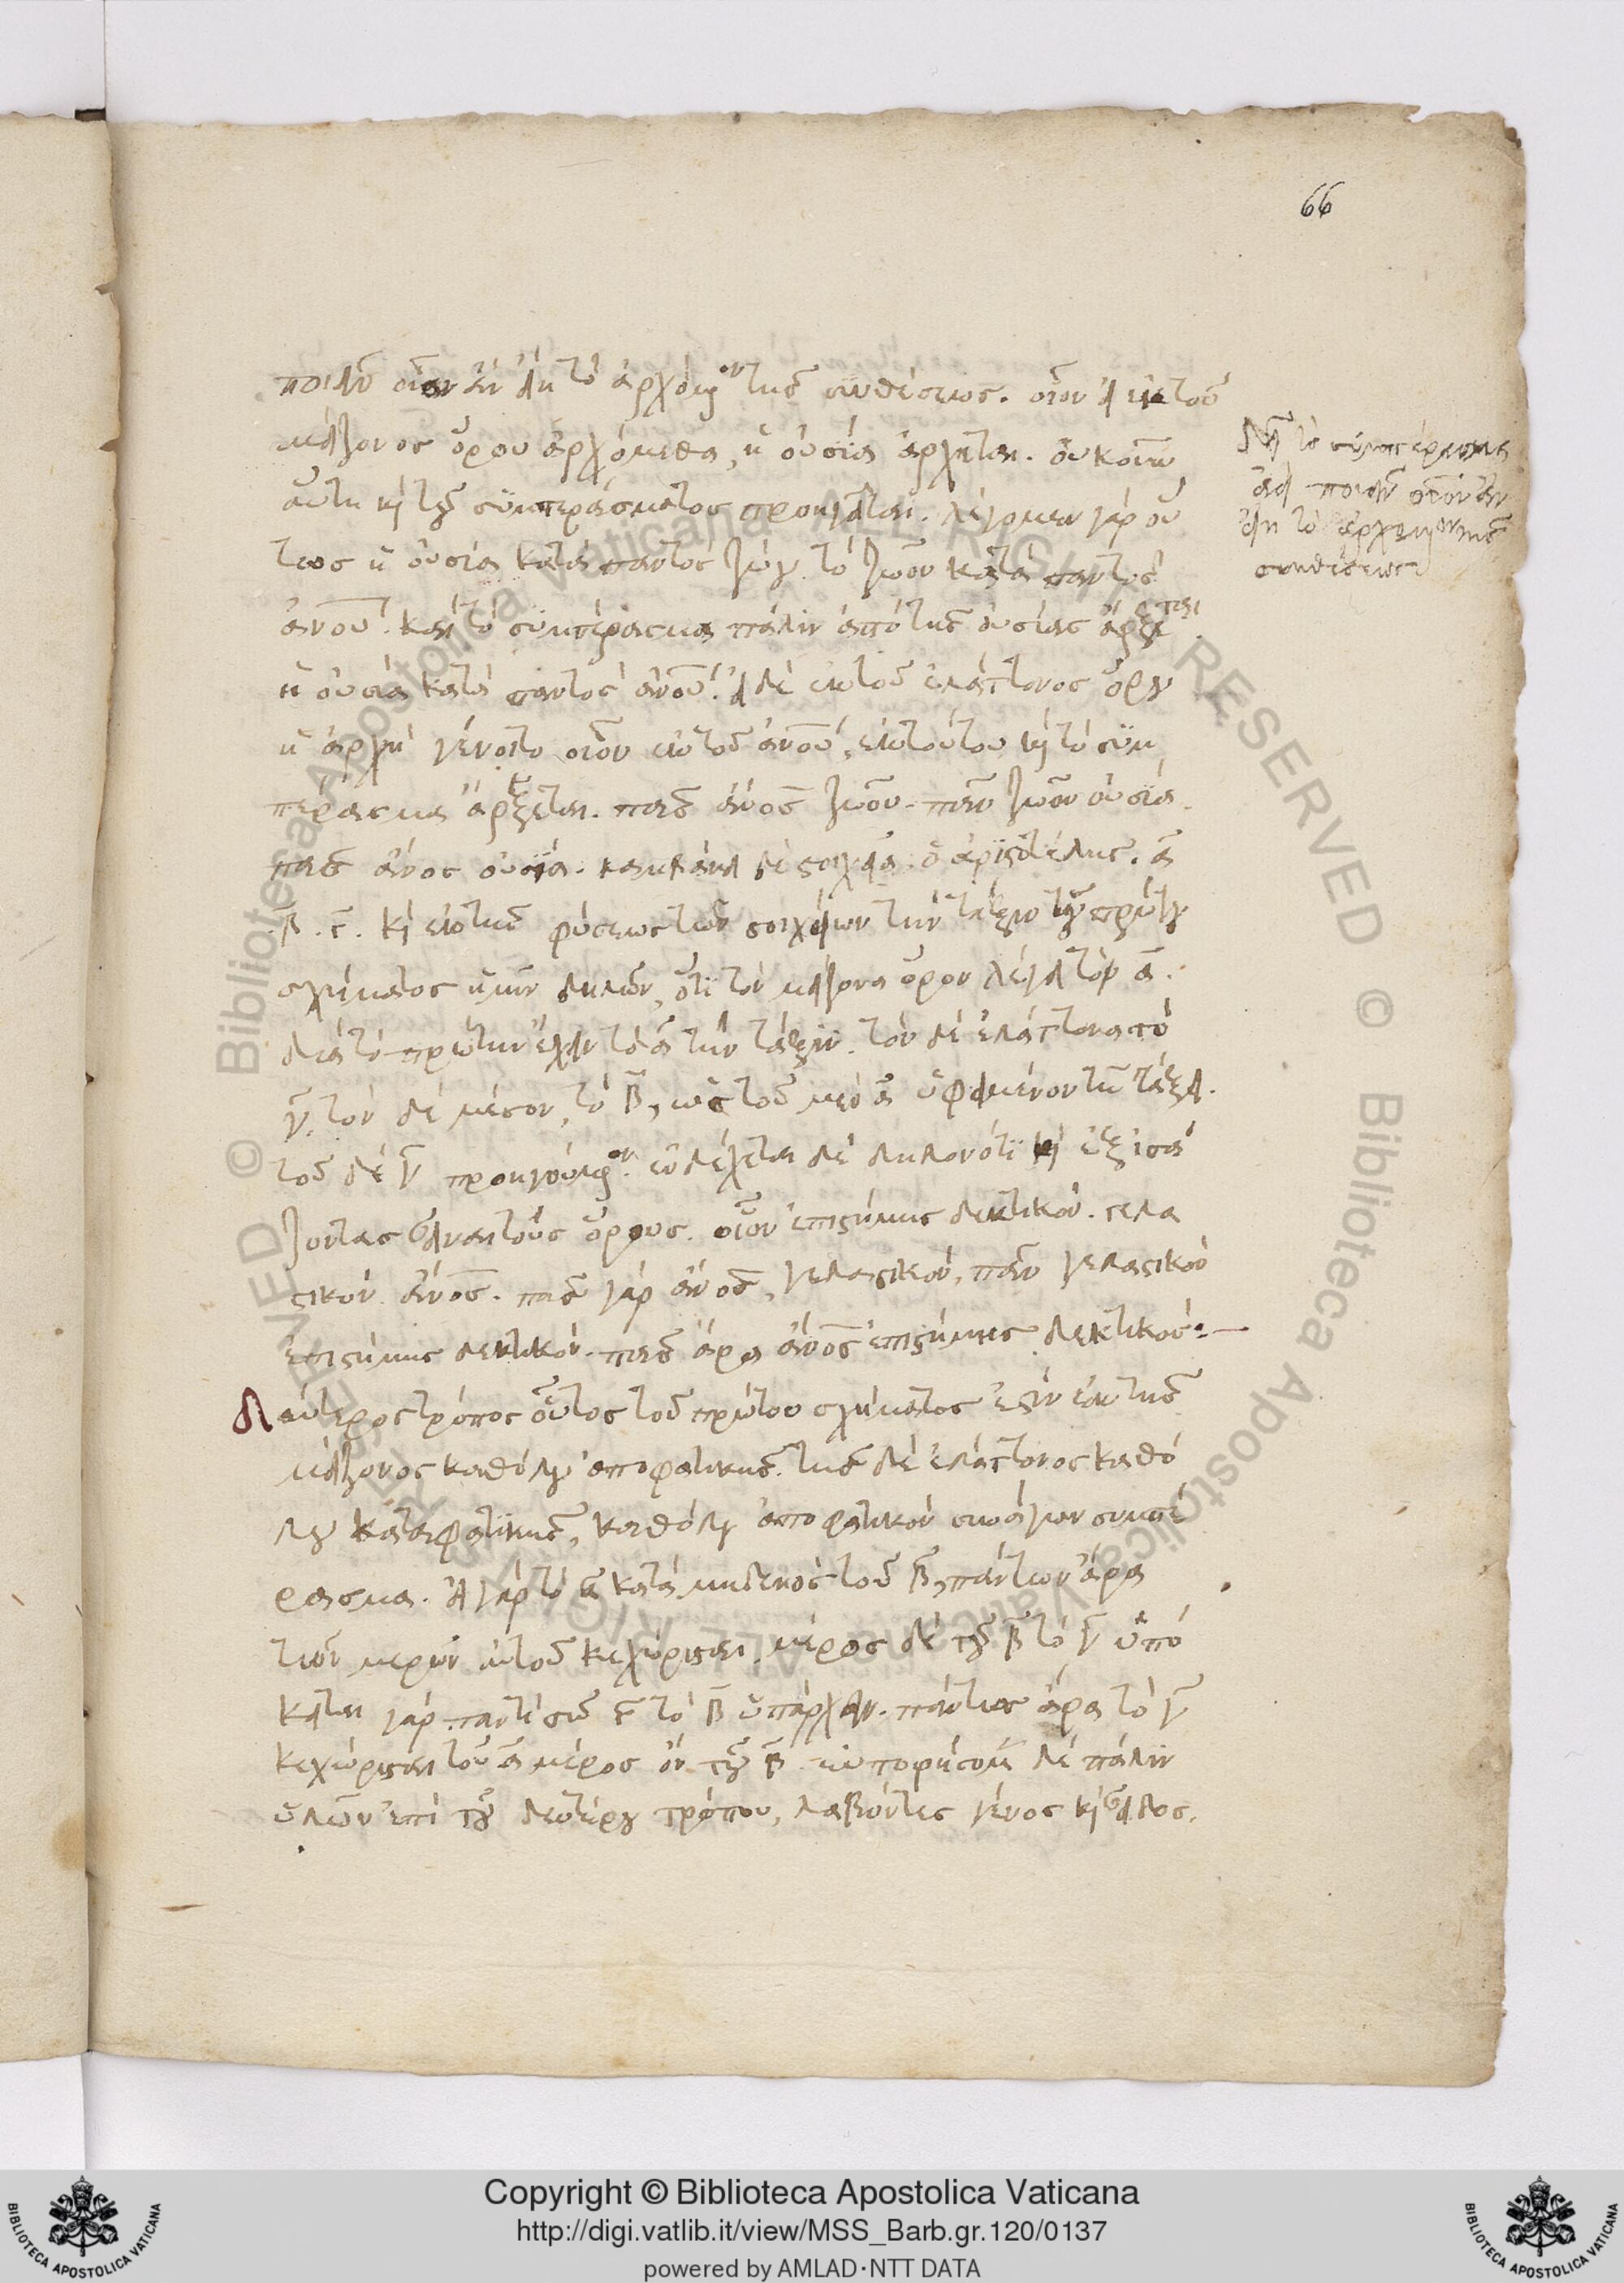 66
ποιεῖν οἷον ἂν εἴη τὸ ἀρχόμενον τῆς συνθέσεως. οἷον εἰ ἐκ τοῦ
μείζονος ὅρου ἀρχόμεθα, ἡ οὐσία ἄρχεται. οὐκοῦν
αὕτη καὶ τοῦ συμπεράσματος προηγεῖται. λέγομεν γὰρ οὕ
τως ἡ οὐσία κατὰ παντὸς ζώου. τὸ ζῶον κατὰ παντὸς
ἀνου. καὶ τὸ συμπέρασμα πάλιν ἀπὸ τῆς οὐσίας ἄρξεται.
ἡ οὐσία κατὰ παντὸς ἀνου. εἰ δὲ ἐκ τοῦ ἐλάττονος ὅρου
ἡ ἀρχὴ γένοιτο οἷον ἐκ τοῦ ἀνου, ἐκ τούτου καὶ τὸ συμ
πέρασμα ἄρξεται. πᾶς ἄνος ζῶον. πᾶν ζῶον οὐσία.
πᾶς ἄνος οὐσία. λαμβάνει δὲ στοιχεῖα ὁ ἀριστοτέλης. α
β. γ. καὶ ἐκ τῆς φύσεως τῶν στοιχείων τὴν τάξιν τοῦ πρώτου
σχήματος ἡμῖν δηλῶν, ὅτι τὸν μείζονα ὅρον λέγει τὸν α.
διὰ τὸ πρώτην ἔχειν τὸ α τὴν τάξιν. τὸν δὲ ἐλάττονα τὸ
γ. τὸν δὲ μέσον, τὸ β, ὡς τοῦ μὲν α ὑφειμένον τῇ τάξει.
τοῦ δὲ γ προηγούμενον. ἐνδέχεται δὲ δηλονότι καὶ ἐξισά
ζοντας εἶναι τοὺς ὅρους. οἷον ἐπιστήμης δεκτικόν. γελα
στικόν. ἄνος. πᾶς γὰρ ἄνος, γελαστικόν, πᾶν γελαστικὸν
ἐπιστήμης δεκτικόν. πᾶς ἄρα ἄνος ἐπιστήμης δεκτικός:—
Δεύτερος τρόπος οὗτος τοῦ πρώτου σχήματος ἐστὶν ἐκ τῆς
μείζονος καθόλου ἀποφατικῆς. τῆς δὲ ἐλάττονος καθό
λου καταφατικῆς, καθόλου ἀποφατικὸν συνάγων συμπέ
ρασμα. εἰ γὰρ τὸ α κατὰ μηδενὸς τοῦ β, πάντων ἄρα
τῶν μερῶν αὐτοῦ κεχώρισται, μέρος δὲ τοῦ β τὸ γ ὑπό
κειται γὰρ παντὶ τῷ γ τὸ β ὑπάρχειν. πάντως ἄρα τὸ γ
κεχώρισται τοῦ α μέρος ὂν τοῦ β. εὐπορήσομεν δὲ πάλιν
ὑλῶν ἐπὶ τοῦ δευτέρου τρόπου, λαβόντες γένος καὶ εἶδος.
τὸ συμπέρασμα
ἀεὶ ποιεῖν οἷον ἂν
εἴη τὸ ἀρχόμενον τῆς
συνθέσεως
Copyright © Biblioteca Apostolica Vaticana
http://digi.vatlib.it/view/MSS_Barb.gr.120/0137
powered by AMLAD·NTT DATA